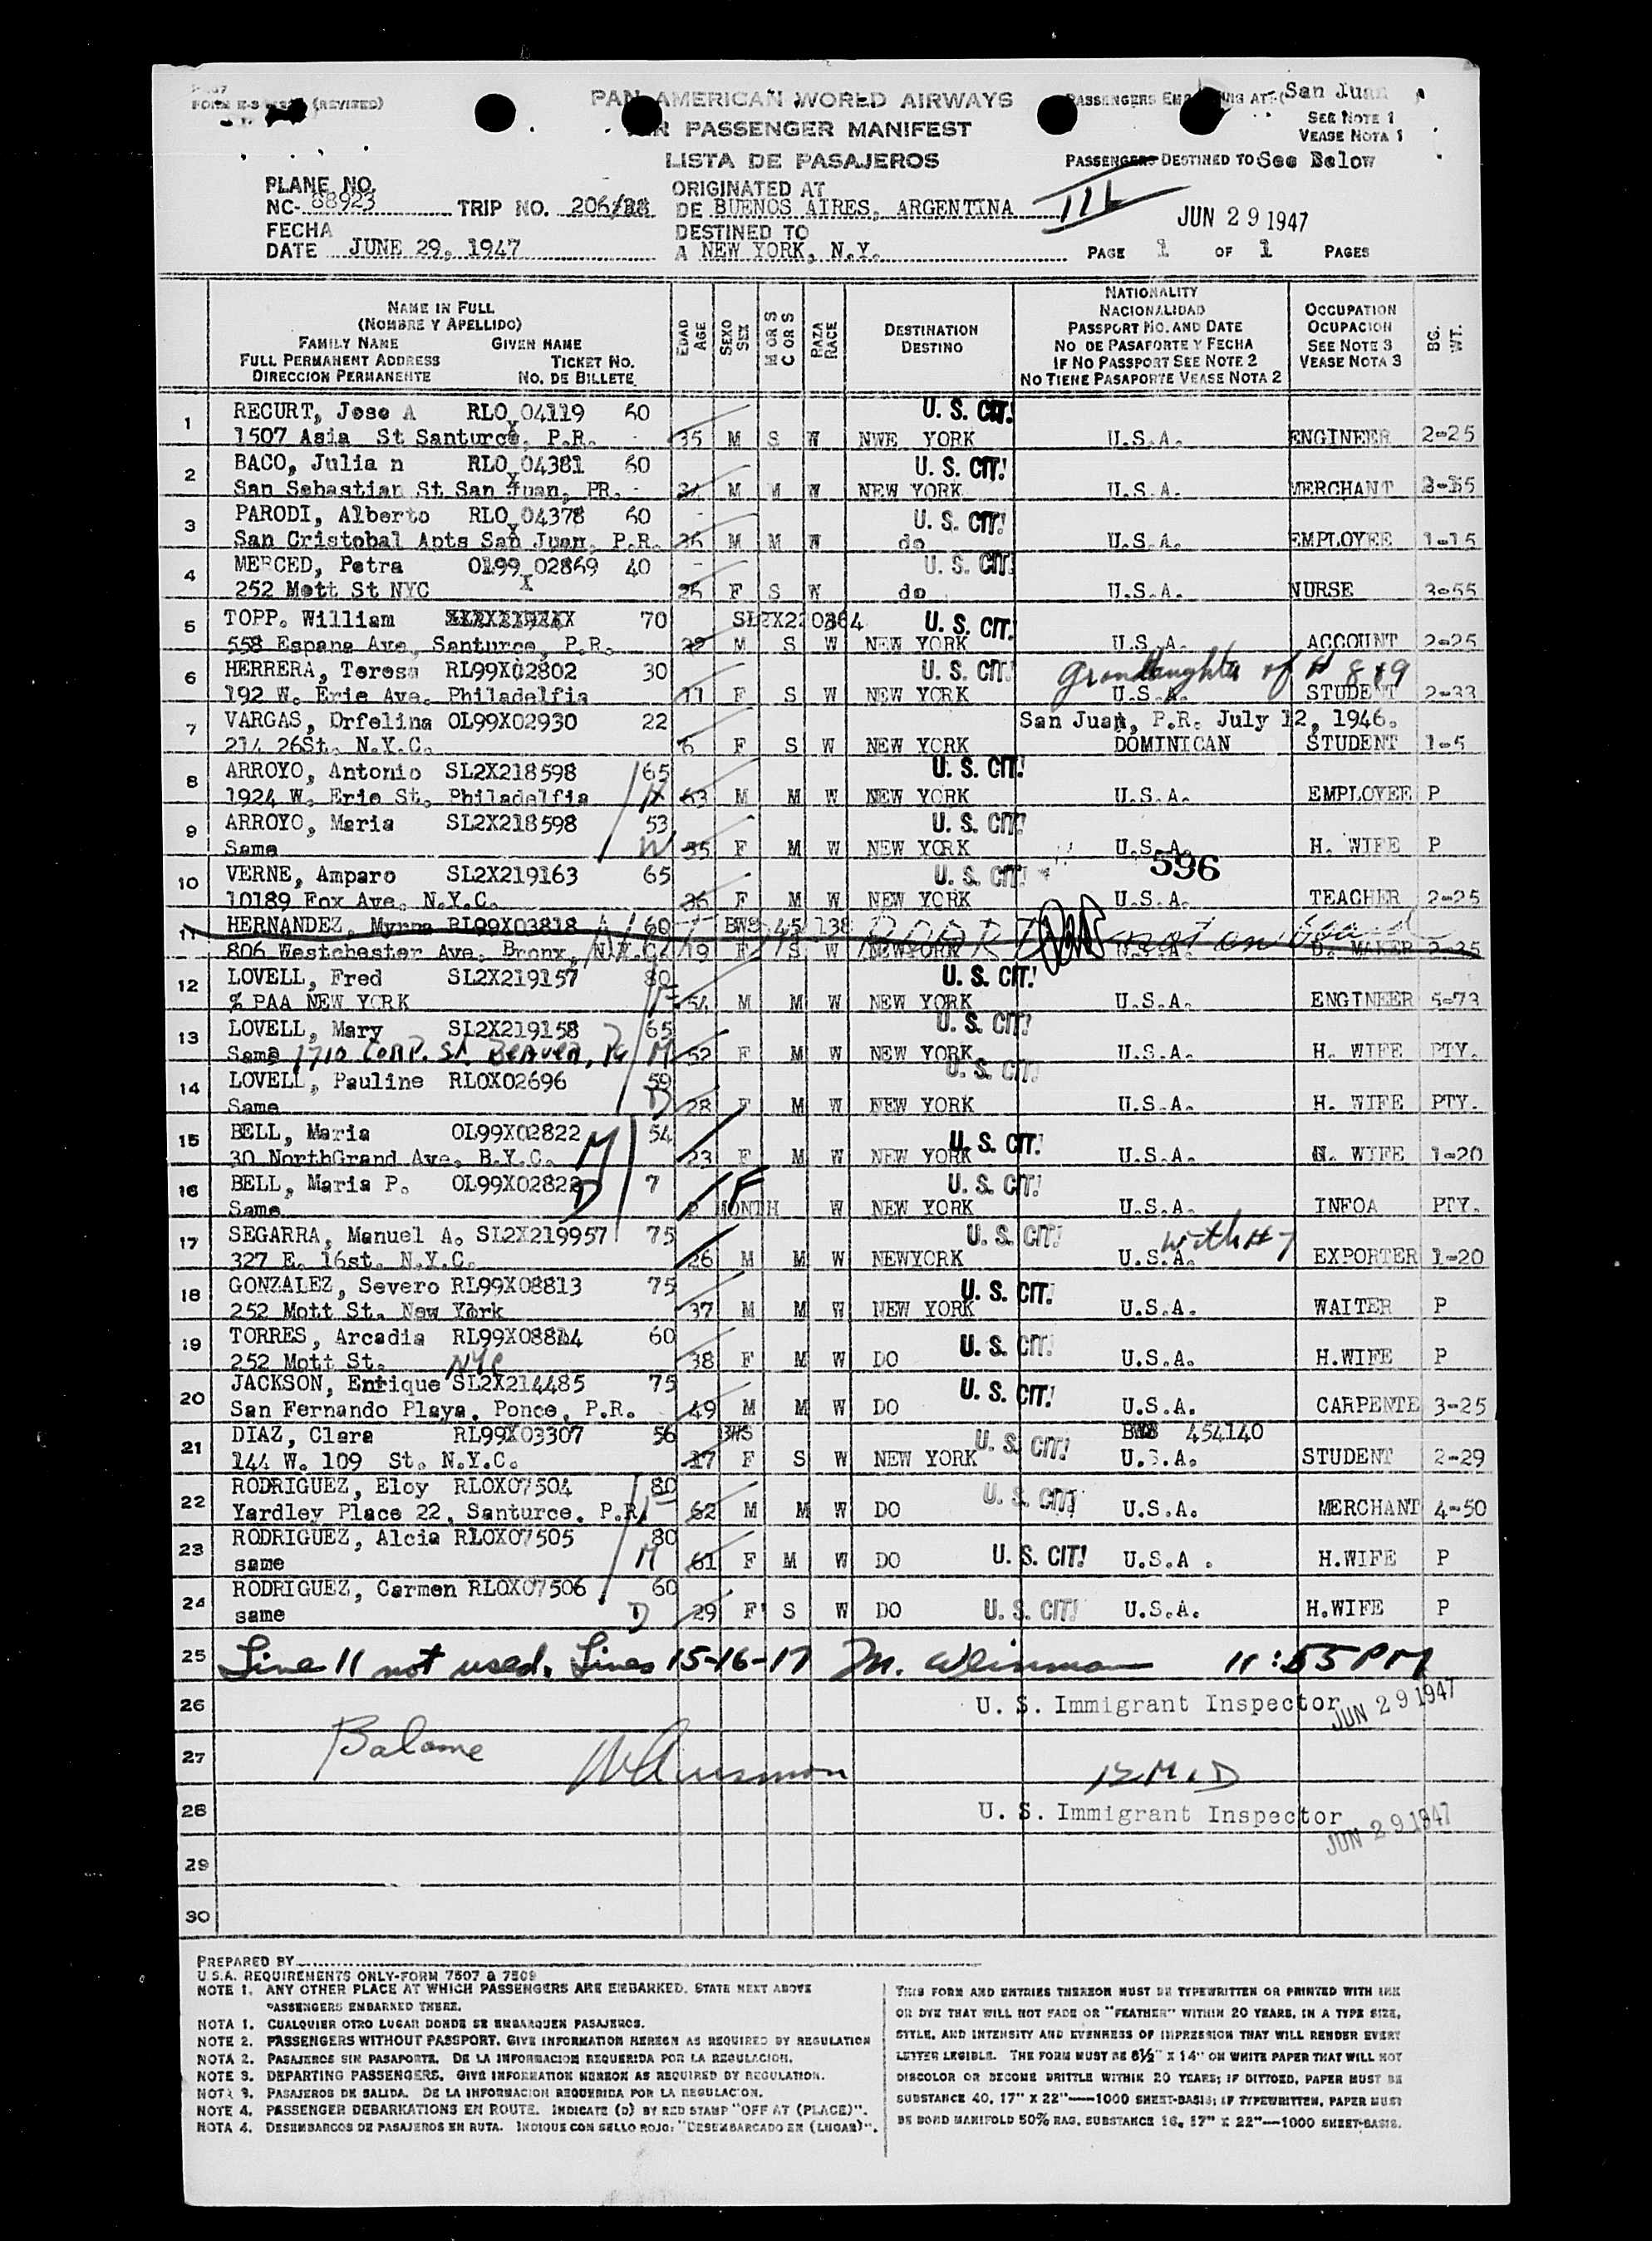 (REVISED)
PAN AMERICAN WORLD AIRWAYS
PASSENGERS EMBARKING AT: San Juan
SEE NOTE 1
VEASE NOTA 1
AIR PASSENGER MANIFEST
LISTA DE PASAJEROS
PASSENGERS DESTINED TO See Below
PLANE NO.
NC- 88923 TRIP NO. 206/
ORIGINATED AT
DE BUENOS AIRES, ARGENTINA
JUN 29 1947
FECHA
DATE JUNE 29, 1947
DESTINED TO
A NEW YORK, N.Y.
PAGE 1 OF 1 PAGES
NAME IN FULL
(NOMBRE Y APELLIDO)
FAMILY NAME GIVEN NAME
FULL PERMANENT ADDRESS TICKET NO.
DIRECCION PERMANENTE NO. DE BILLETE
EDAD AGE
SEXO SEX
M OR S C OR S
RAZA RACE
DESTINATION
DESTINO
NATIONALITY
NACIONALIDAD
PASSPORT NO. AND DATE
NO DE PASAPORTE Y FECHA
IF NO PASSPORT SEE NOTE 2
NO TIENE PASAPORTE VEASE NOTA 2
OCCUPATION
OCUPACION
SEE NOTE 3
VEASE NOTA 3
BG. WT.
1 RECURT, Jose A RLO X 04119 60 U. S. CIT!
1507 Asia St Santurce, P.R. 35 M S W NWE YORK U.S.A. ENGINEER 2-25
2 BACO, Julia n RLO X 04381 60 U. S. CIT!
San Sebastian St San Juan, PR. M M W NEW YORK U.S.A. MERCHANT
3 PARODI, Alberto RLO X 04378 60 U. S. CIT!
San Cristobal Apts San Juan, P.R. 36 M M W do U.S.A. EMPLOYEE 1-15
4 MERCED, Petra OL99 X 02869 40 U. S. CIT!
252 Mott St NYC 26 F S W do U.S.A. NURSE 3-55
5 TOPP. William 70 SL2X220364 U. S. CIT!
558 Espana Ave, Santurce, P.R. M S W NEW YORK U.S.A. ACCOUNT 2-25
6 HERRERA, Teresa RL99X02802 30 U. S. CIT! Granddaughter of # 8 & 9
192 W. Erie Ave. Philadelfia 11 F S W NEW YORK U.S.A. STUDENT 2-33
7 VARGAS, Orfelina OL99X02930 22 San Juan, P.R. July 12, 1946.
214 26St. N.Y.C. 6 F S W NEW YORK DOMINICAN STUDENT 1-5
8 ARROYO, Antonio SL2X218598 65 U. S. CIT!
1924 W. Erie St. Philadelfia H 63 M M W NEW YORK U.S.A. EMPLOYEE P
9 ARROYO, Maria SL2X218598 53 U. S. CIT!
Same W 55 F M W NEW YORK U.S.A. H. WIFE P
596
10 VERNE, Amparo SL2X219163 65 U. S. CIT!
10189 Fox Ave. N.Y.C. 36 F M W NEW YORK U.S.A. TEACHER 2-25
11 HERNANDEZ, Myrna RL99X03818 60 BWS 45 138 not on board
806 Westchester Ave. Bronx, N.Y.C. 19 F S W NEWYORK U.S.A. D. MAKER 2-35
12 LOVELL, Fred SL2X219157 80 U. S. CIT!
% PAA NEW YORK F 54 M M W NEW YORK U.S.A. ENGINEER 5-73
13 LOVELL, Mary SL2X219158 65 U. S. CIT!
Same 1710 Corp. St. Beaver, Pa M 52 F M W NEW YORK U.S.A. H. WIFE PTY.
14 LOVELL, Pauline RLOX02696 59 U. S. CIT!
Same D 28 F M W NEW YORK U.S.A. H. WIFE PTY.
15 BELL, Maria OL99X02822 54 U. S. CIT!
30 NorthGrand Ave. B.Y.C. M 23 F M W NEW YORK U.S.A. H. WIFE 1-20
16 BELL, Maria P. OL99X02822 7 F U. S. CIT!
Same D MONTH W NEW YORK U.S.A. INFOA PTY.
17 SEGARRA, Manuel A. SL2X219957 75 U. S. CIT! with # 7
327 E. 16st. N.Y.C. 26 M M W NEWYORK U.S.A. EXPORTER 1-20
18 GONZALEZ, Severo RL99X08813 75 U. S. CIT!
252 Mott St. New York 37 M M W NEW YORK U.S.A. WAITER P
19 TORRES, Arcadia RL99X08814 60 U. S. CIT!
252 Mott St. NYC 38 F M W DO U.S.A. H.WIFE P
20 JACKSON, Enrique SL2X214485 75 U. S. CIT!
San Fernando Playa, Ponce, P.R. 49 M M W DO U.S.A. CARPENTE 3-25
21 DIAZ, Clara RL99X03307 56 BWS U. S. CIT! 454140
144 W. 109 St. N.Y.C. 17 F S W NEW YORK U.S.A. STUDENT 2-29
22 RODRIGUEZ, Eloy RLOX07504 80 U. S. CIT!
Yardley Place 22, Santurce, P.R. F 62 M M W DO U.S.A. MERCHANT 4-50
23 RODRIGUEZ, Alcia RLOX07505 80
same M 61 F M W DO U. S. CIT! U.S.A . H.WIFE P
24 RODRIGUEZ, Carmen RLOX07506 60
same D 29 F S W DO U. S. CIT! U.S.A. H.WIFE P
25 Line 11 not used. Lines 15-16-17 M. Weinman 11:55 PM
26 U. S. Immigrant Inspector JUN 29 1947
27 Balance 12 M.D
28 U. S. Immigrant Inspector JUN 29 1947
29
30
PREPARED BY
U.S.A. REQUIREMENTS ONLY-FORM 7507 & 7509
NOTE 1. ANY OTHER PLACE AT WHICH PASSENGERS ARE EMBARKED. STATE NEXT ABOVE
PASSENGERS EMBARKED THERE.
NOTA 1. CUALQUIER OTRO LUGAR DONDE SE EMBARQUEN PASAJEROS.
NOTE 2. PASSENGERS WITHOUT PASSPORT. GIVE INFORMATION HEREON AS REQUIRED BY REGULATION
NOTA 2. PASAJEROS SIN PASAPORTE. DE LA INFORMACION REQUERIDA POR LA REGULACION.
NOTE 3. DEPARTING PASSENGERS. GIVE INFORMATION HEREON AS REQUIRED BY REGULATION.
NOTA 3. PASAJEROS DE SALIDA. DE LA INFORMACION REQUERIDA POR LA REGULACION.
NOTE 4. PASSENGER DEBARKATIONS EN ROUTE. INDICATE (D) BY RED STAMP "OFF AT (PLACE)".
NOTA 4. DESEMBARCOS DE PASAJEROS EN RUTA. INDIQUE CON SELLO ROJO: "DESEMBARCADO EN (LUGAR)".
THIS FORM AND ENTRIES THEREON MUST BE TYPEWRITTEN OR PRINTED WITH INK
OR DYE THAT WILL NOT FADE OR "FEATHER" WITHIN 20 YEARS, IN A TYPE SIZE,
STYLE, AND INTENSITY AND EVENNESS OF IMPRESSION THAT WILL RENDER EVERY
LETTER LEGIBLE. THE FORM MUST BE 8½" X 14" ON WHITE PAPER THAT WILL NOT
DISCOLOR OR BECOME BRITTLE WITHIN 20 YEARS; IF DITTOED, PAPER MUST BE
SUBSTANCE 40, 17" X 22"—1000 SHEET-BASIS; IF TYPEWRITTEN, PAPER MUST
BE BOND MANIFOLD 50% RAG, SUBSTANCE 16, 17" X 22"—1000 SHEET-BASIS.